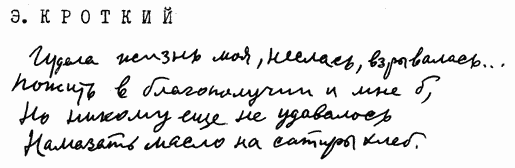 Э. КРОТКИЙ
Гудела жизнь моя, неслась, взрывалась...
Пожить в благополучии и мне б,
Но никому еще не удавалось
Намазать масло на сатиры хлеб.